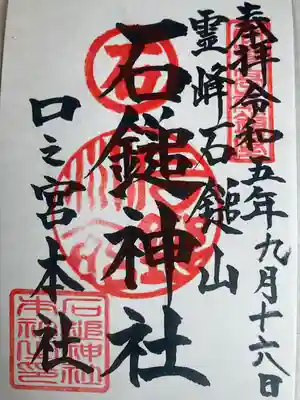 奉拝 令和五年九月十六日
霊峰石鎚山
石鎚神社
口之宮本社
石鎚神社
本社之印